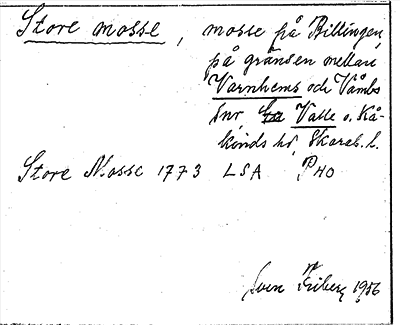 Store mosse, mosse på Billingen,
på gränsen mellan
Varnhems och Våmbs
snr, Valle o. Kå-
kinds hd, Skarab. l.
Store Mosse 1773 LSA PHO
Sven Friberg 1956